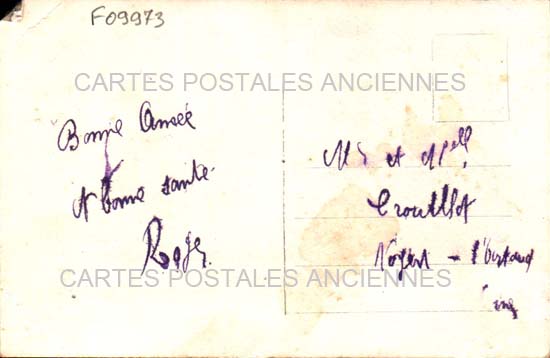 F09973
CARTES POSTALES ANCIENNES
Bonne Année
et bonne santé
Roger
Mr et Mell
Nogent - l'Artaud
CARTES POSTALES ANCIENNES